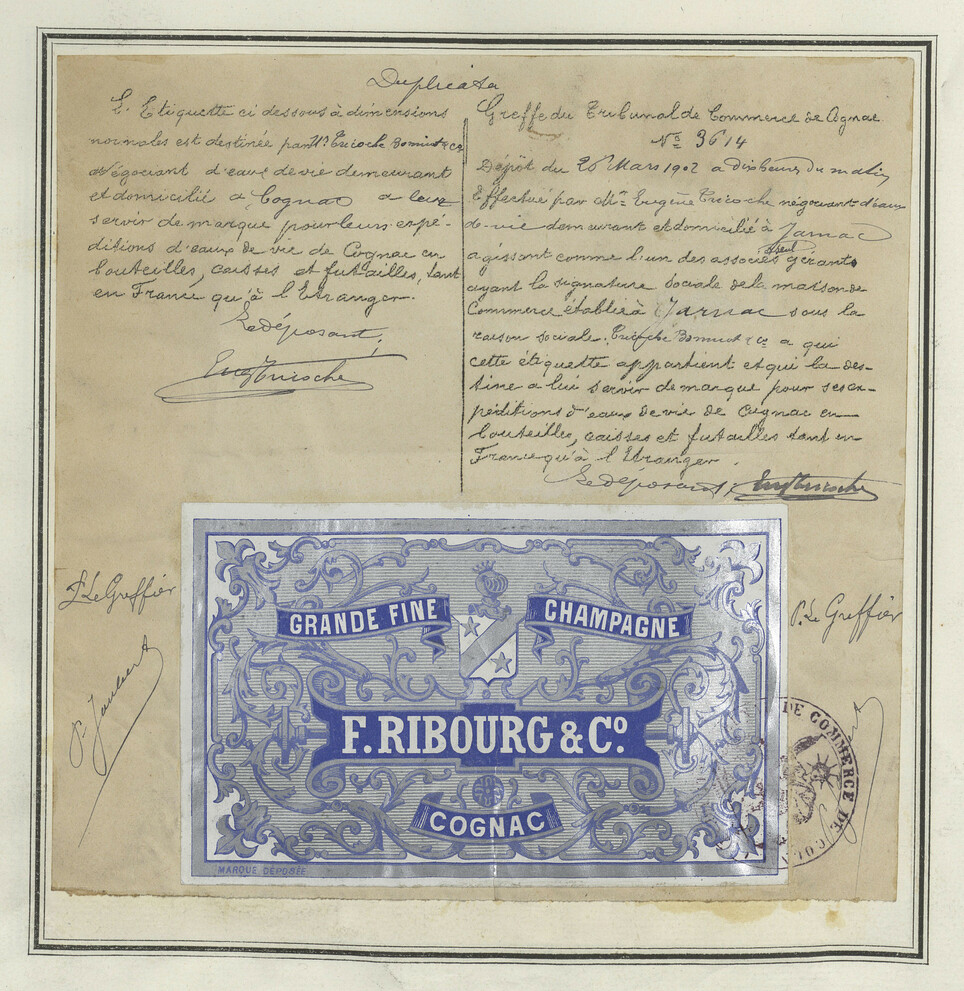 Duplicata
L'Etiquette ci dessous à dimensions
normales est destinée par Mrs Tricoche Bonniot & Co
Négociant d'eaux de vie demeurant
et domicilié à Cognac a leur
servir de marque pour leurs expé-
ditions d'eaux de vie de Cognac en
bouteilles, caisses et futailles, tant
en France qu'à l'Etranger.
Le déposant,
Eug Tricoche
Greffe du Tribunal de Commerce de Cognac
No 3614
Dépôt du 26 Mars 1902 a dix heures du matin
Effectué par Mr Eugène Tricoche négociant d'eaux
de-vie demeurant et domicilié à Jarnac
agissant comme l'un des associés gérants
ayant la signature sociale de la maison de
Commerce établie à Jarnac sous la
raison sociale: Tricoche Bonniot & Co a qui
cette étiquette appartient et qui la des-
tine a lui servir de marque pour ses ex-
péditions d'eaux de vie de Cognac en
bouteilles, caisses et futailles tant en
France qu'à l'Etranger.
Le déposant, Eug Tricoche
P. Le Greffier
P. Le Greffier
GRANDE FINE CHAMPAGNE
F. RIBOURG & Co.
COGNAC
MARQUE DÉPOSÉE
DE COMMERCE DE